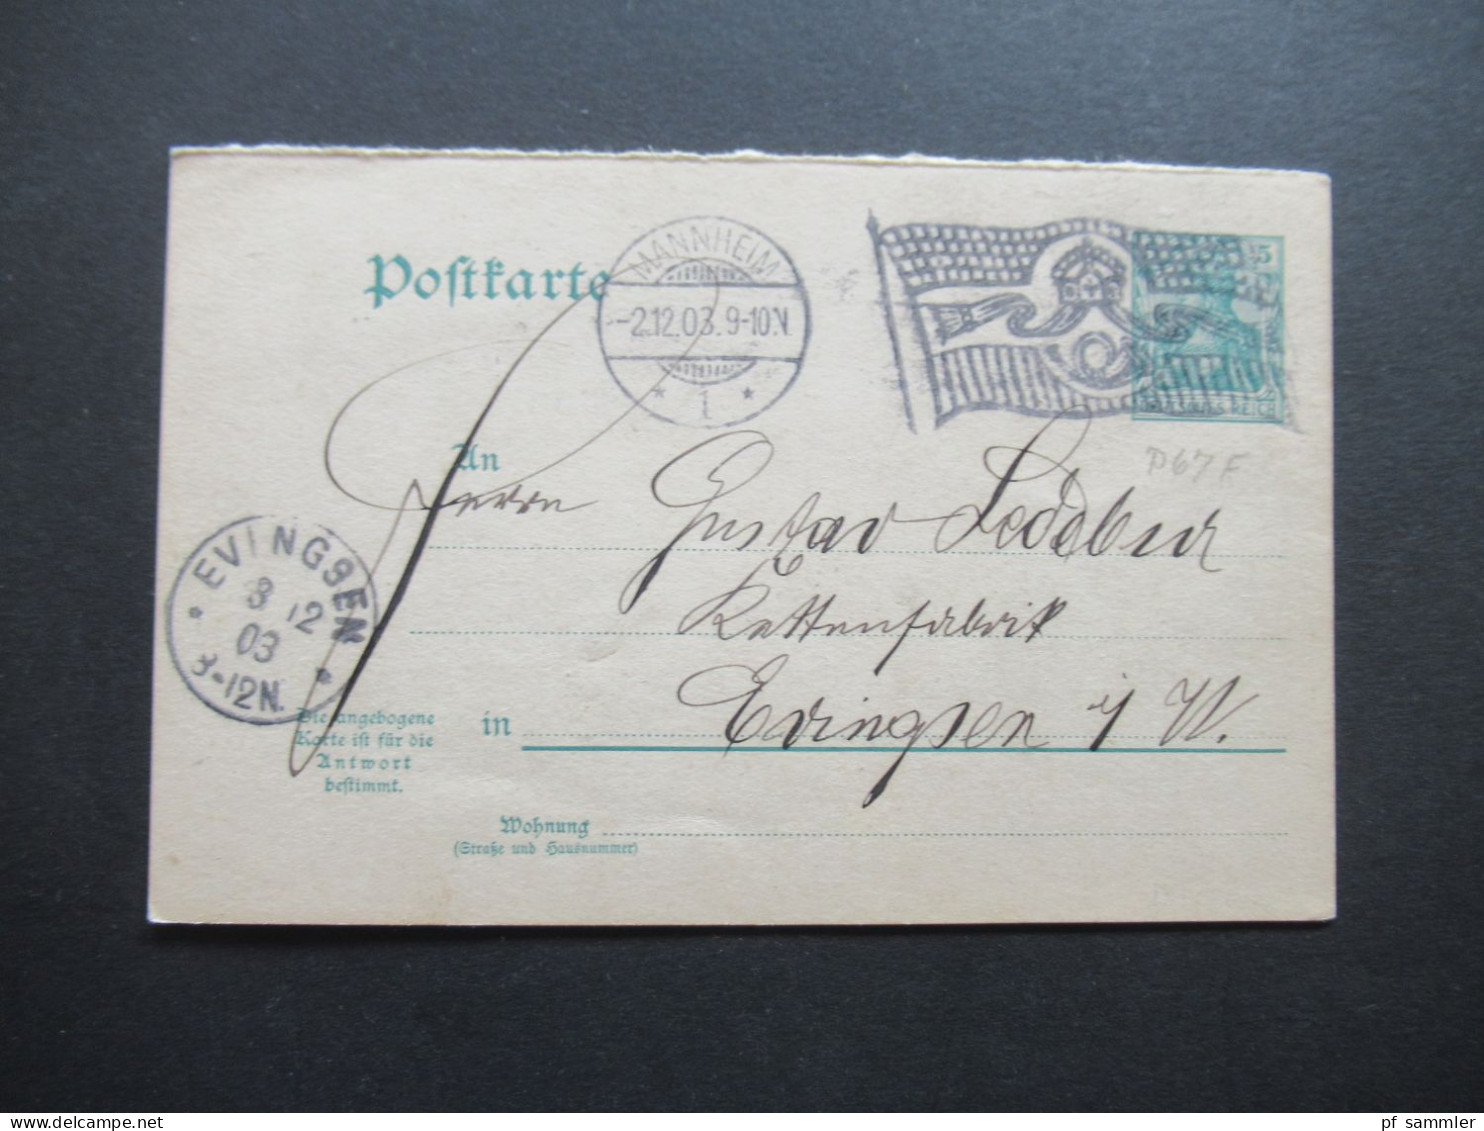 Postkarte
MANNHEIM
-2.12.03.9-10.N
* 1 *
5
REICH
P67F
An
Herrn Gustav Ledebur
Kettenfabrik
in Evingsen i/W.
EVINGSEN
3 12
03
* 8-12N. *
Die angebogene
Karte ist für die
Antwort
bestimmt.
Wohnung
(Straße und Hausnummer)
pf sammler